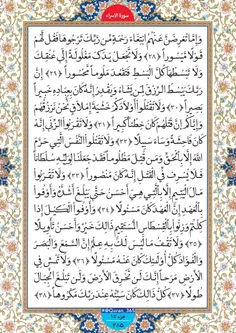 سورة الاسراء
وَإِمَّا تُعْرِضَنَّ عَنْهُمُ ابْتِغَاءَ رَحْمَةٍ مِنْ رَبِّكَ تَرْجُوهَا فَقُلْ لَهُمْ
قَوْلًا مَيْسُورًا ﴿٢٨﴾ وَلَا تَجْعَلْ يَدَكَ مَغْلُولَةً إِلَىٰ عُنُقِكَ
وَلَا تَبْسُطْهَا كُلَّ الْبَسْطِ فَتَقْعُدَ مَلُومًا مَحْسُورًا ﴿٢٩﴾ إِنَّ
رَبَّكَ يَبْسُطُ الرِّزْقَ لِمَنْ يَشَاءُ وَيَقْدِرُ إِنَّهُ كَانَ بِعِبَادِهِ خَبِيرًا
بَصِيرًا ﴿٣٠﴾ وَلَا تَقْتُلُوا أَوْلَادَكُمْ خَشْيَةَ إِمْلَاقٍ نَحْنُ نَرْزُقُهُمْ
وَإِيَّاكُمْ إِنَّ قَتْلَهُمْ كَانَ خِطْئًا كَبِيرًا ﴿٣١﴾ وَلَا تَقْرَبُوا الزِّنَا إِنَّهُ
كَانَ فَاحِشَةً وَسَاءَ سَبِيلًا ﴿٣٢﴾ وَلَا تَقْتُلُوا النَّفْسَ الَّتِي حَرَّمَ
اللَّهُ إِلَّا بِالْحَقِّ وَمَنْ قُتِلَ مَظْلُومًا فَقَدْ جَعَلْنَا لِوَلِيِّهِ سُلْطَانًا
فَلَا يُسْرِفْ فِي الْقَتْلِ إِنَّهُ كَانَ مَنْصُورًا ﴿٣٣﴾ وَلَا تَقْرَبُوا
مَالَ الْيَتِيمِ إِلَّا بِالَّتِي هِيَ أَحْسَنُ حَتَّىٰ يَبْلُغَ أَشُدَّهُ وَأَوْفُوا
بِالْعَهْدِ إِنَّ الْعَهْدَ كَانَ مَسْئُولًا ﴿٣٤﴾ وَأَوْفُوا الْكَيْلَ إِذَا
كِلْتُمْ وَزِنُوا بِالْقِسْطَاسِ الْمُسْتَقِيمِ ذَٰلِكَ خَيْرٌ وَأَحْسَنُ تَأْوِيلًا
﴿٣٥﴾ وَلَا تَقْفُ مَا لَيْسَ لَكَ بِهِ عِلْمٌ إِنَّ السَّمْعَ وَالْبَصَرَ
وَالْفُؤَادَ كُلُّ أُولَٰئِكَ كَانَ عَنْهُ مَسْئُولًا ﴿٣٦﴾ وَلَا تَمْشِ فِي
الْأَرْضِ مَرَحًا إِنَّكَ لَنْ تَخْرِقَ الْأَرْضَ وَلَنْ تَبْلُغَ الْجِبَالَ
طُولًا ﴿٣٧﴾ كُلُّ ذَٰلِكَ كَانَ سَيِّئُهُ عِنْدَ رَبِّكَ مَكْرُوهًا ﴿٣٨﴾
@Quran_365
جزء ١٥
٢٨٥